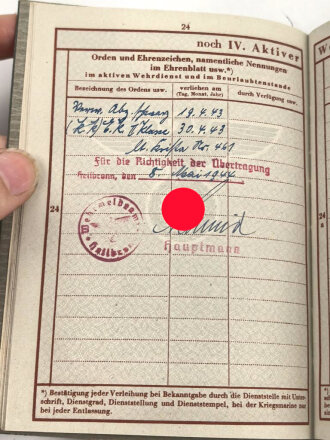 24
noch IV. Aktiver
Orden und Ehrenzeichen, namentliche Nennungen
im Ehrenblatt usw.*)
im aktiven Wehrdienst und im Beurlaubtenstande
Bezeichnung des Ordens usw.
verliehen am
(Tag, Monat, Jahr)
durch Verfügung usw.
Verw. Abz. 19.4.43
E.K. II Klasse 30.4.43
Nr. 461
Für die Richtigkeit der Übertragung
Heilbronn, den 8. Mai 1944
24
Wehrmeldeamt
Heilbronn
Hauptmann
*) Bestätigung jeder Verleihung bei Bekanntgabe durch die Dienststelle mit Unter-
schrift, Dienstgrad, Dienststellung und Dienststempel, bei der Kriegsmarine nur
bei jeder Entlassung.